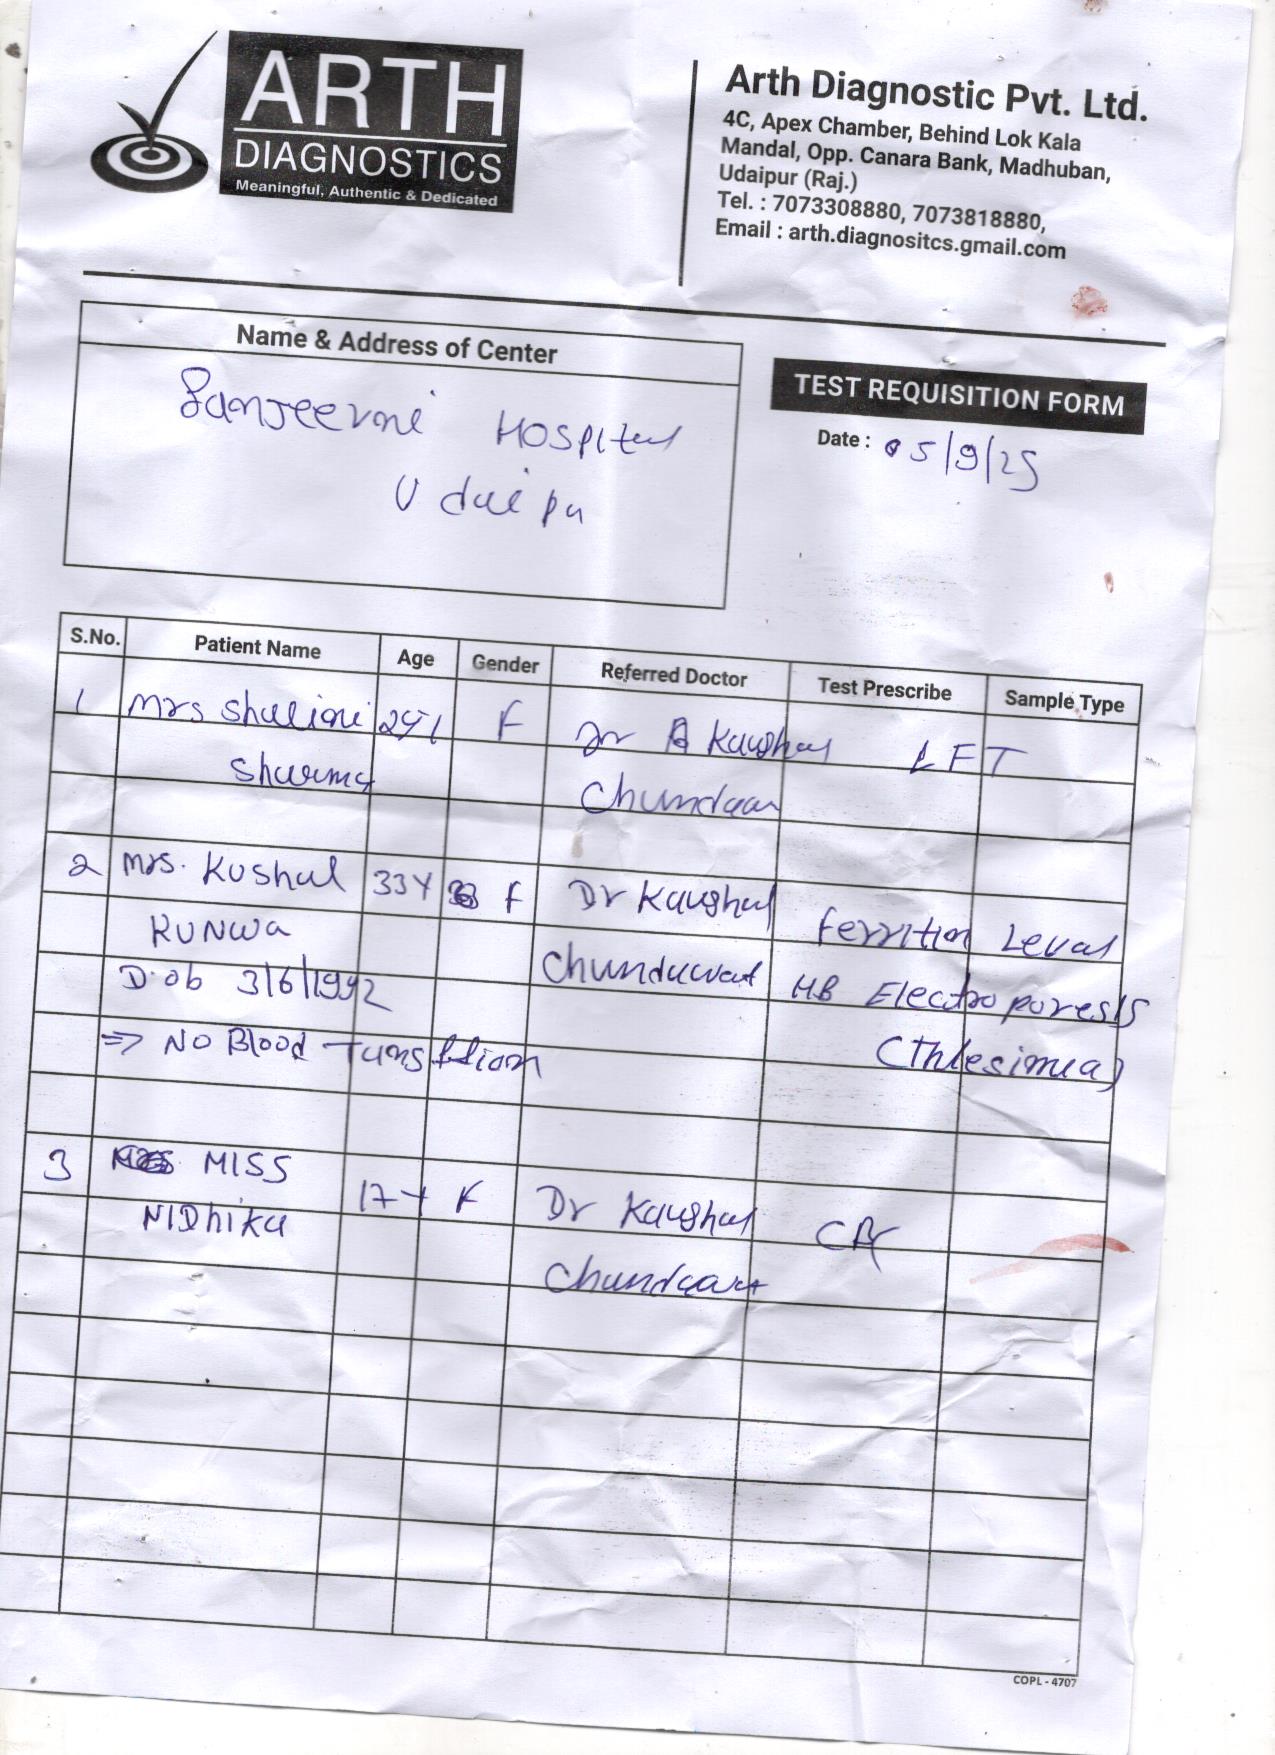 ARTH
DIAGNOSTICS
Meaningful, Authentic & Dedicated
Arth Diagnostic Pvt. Ltd.
4C, Apex Chamber, Behind Lok Kala
Mandal, Opp. Canara Bank, Madhuban,
Udaipur (Raj.)
Tel. : 7073308880, 7073818880,
Email : arth.diagnositcs.gmail.com
Name & Address of Center
Sanjeevni Hospital
Udaipu
TEST REQUISITION FORM
Date : 05/9/25
S.No. Patient Name Age Gender Referred Doctor Test Prescribe Sample Type
1 Mrs Shalini F Dr Kaushal LFT
Sharma
2 Mrs. Kushal 33Y F Dr Kaushal Ferrition Leval
KUNWA Chundawat HB Electroporesis
D.ob 3/6/1992 (Thlesimia)
⇒ NO Blood
3 MISS 17Y F Dr Kaushal
NIDhika
COPL - 4707